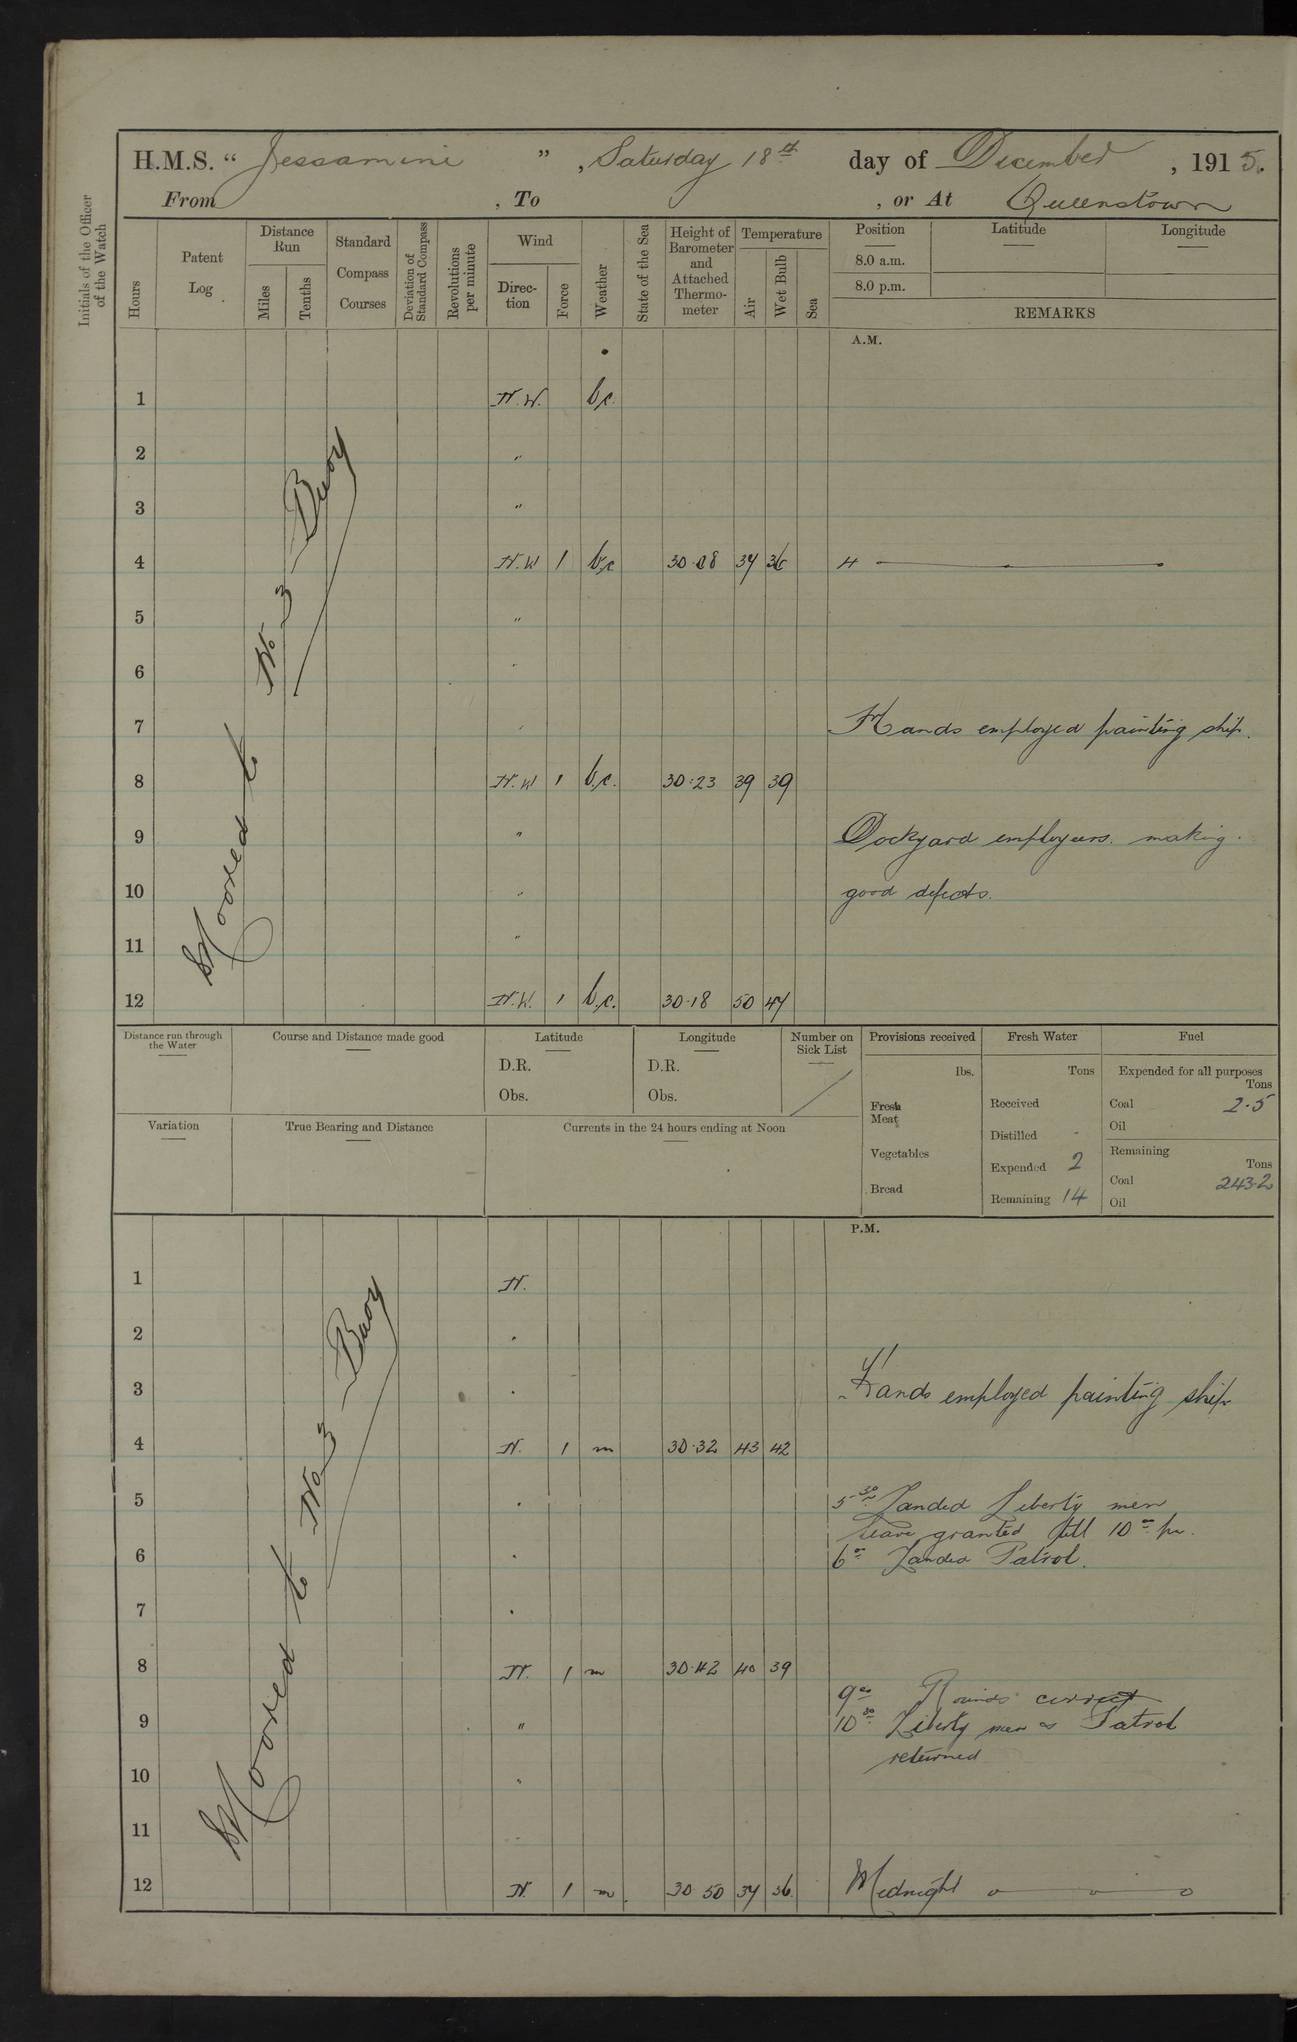 H.M.S. “ Jessamine ” , Saturday 18th day of December , 1915.
From , To , or At Queenstown
Initials of the Officer of the Watch
Hours
Patent Log
Distance Run
Miles
Tenths
Standard Compass Courses
Deviation of Standard Compass
Revolutions per minute
Wind
Direc-tion
Force
Weather
State of the Sea
Height of Barometer and Attached Thermo-meter
Temperature
Air
Wet Bulb
Sea
Position
8.0 a.m.
8.0 p.m.
Latitude
Longitude
REMARKS
A.M.
Moored to No 3 Buoy
1 N.W. b.c.
2 "
3 "
4 N.W 1 b.c 30.08 37 36 4
5 "
6 "
7 " Hands employed painting ship.
8 N.W 1 b.c. 30.23 39 39
9 " Dockyard employees. making
10 " good defects.
11 "
12 N.W. 1 b.c. 30.18 50 47
Distance run through the Water
Course and Distance made good
Latitude
D.R.
Obs.
Longitude
D.R.
Obs.
Number on Sick List
Provisions received
lbs.
Fresh Meat
Vegetables
Bread
Fresh Water
Tons
Received
Distilled -
Expended 2
Remaining 14
Fuel
Expended for all purposes
Tons
Coal 2.5
Oil
Remaining
Tons
Coal 243.2
Oil
Variation
True Bearing and Distance
Currents in the 24 hours ending at Noon
P.M.
Moored to No 3 Buoy
1 N.
2 "
3 " Hands employed painting ship
4 N. 1 m 30.32 43 42
5 " 5 30 Landed Liberty men
leave granted till 10 pm.
6 " 6 00 Landed Patrol.
7 "
8 N. 1 m 30.42 40 39
9 00 Rounds correct
9 " 10 30 Liberty men & Patrol
returned
10 "
11 "
12 N. 1 m. 30 50 37 36 Midnight